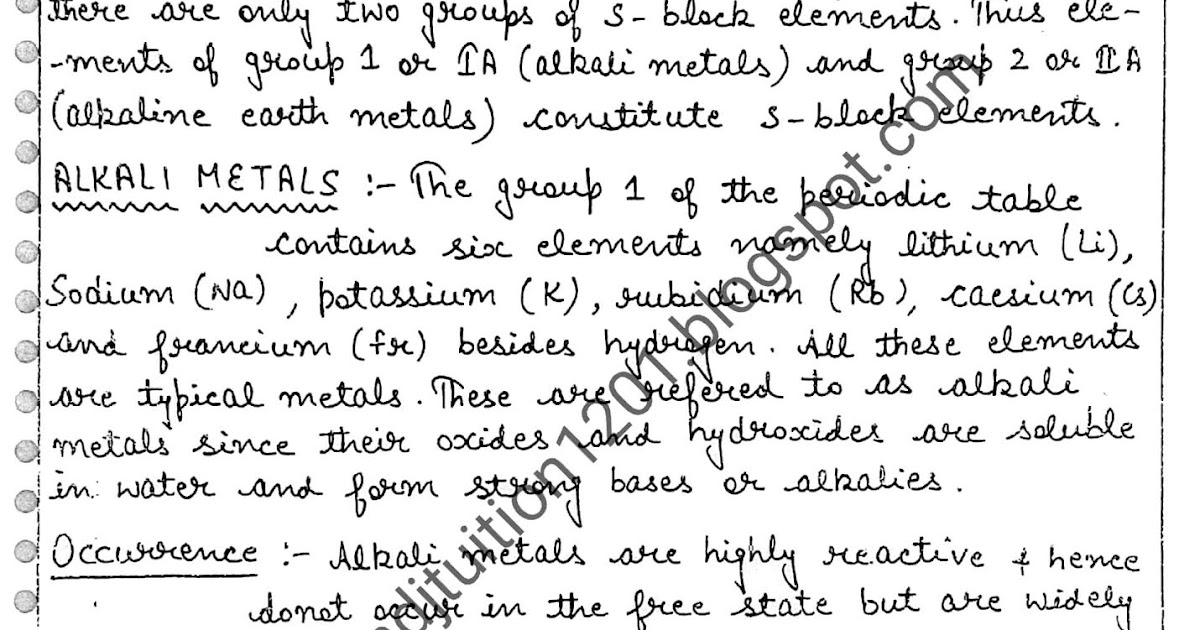 there are only two groups of S-block elements. Thus ele-
-ments of group 1 or IA (alkali metals) and group 2 or IIA
(alkaline earth metals) constitute s-block elements.
ALKALI METALS :- The group 1 of the periodic table
contains six elements namely lithium (Li),
Sodium (Na), potassium (K), rubidium (Rb), caesium (Cs)
and francium (fr) besides hydrogen. All these elements
are typical metals. These are refered to as alkali
metals since their oxides and hydroxides are soluble
in water and form strong bases or alkalies.
Occurrence :- Alkali metals are highly reactive & hence
donot occur in the free state but are widely
djtuition1201.blogspot.com